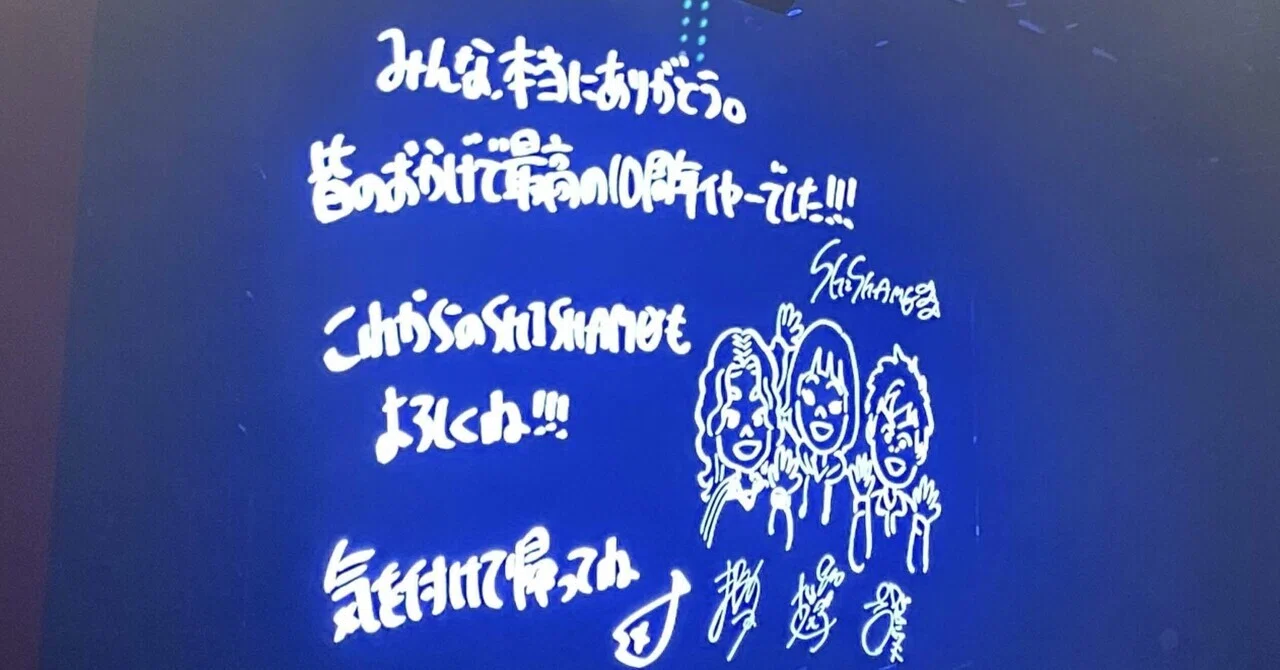 みんな、本当にありがとう。
皆のおかげで最高の10周年イヤーでした!!!
SHISHAMO
これからのSHISHAMOも
よろしくね!!!
気を付けて帰ってね